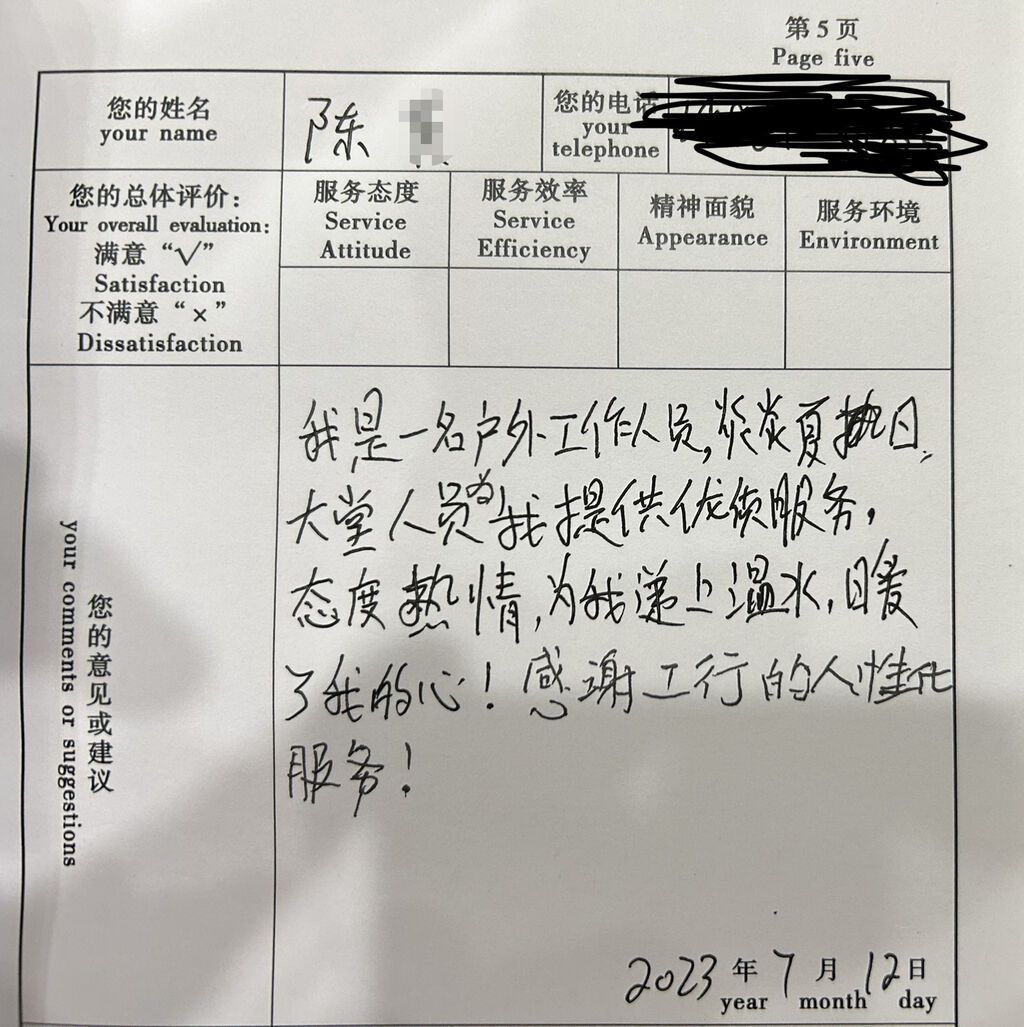 第 5 页
Page five
您的姓名
your name
陈
您的电话
your
telephone
您的总体评价:
Your overall evaluation:
满意 “√”
Satisfaction
不满意 “×”
Dissatisfaction
服务态度
Service
Attitude
服务效率
Service
Efficiency
精神面貌
Appearance
服务环境
Environment
您的意见或建议
your comments or suggestions
我是一名户外工作人员,炎炎夏日,
大堂人员为我提供优质服务,
态度热情,为我递上温水,暖
了我的心!感谢工行的人性化
服务!
2023 年 7 月 12 日
year month day